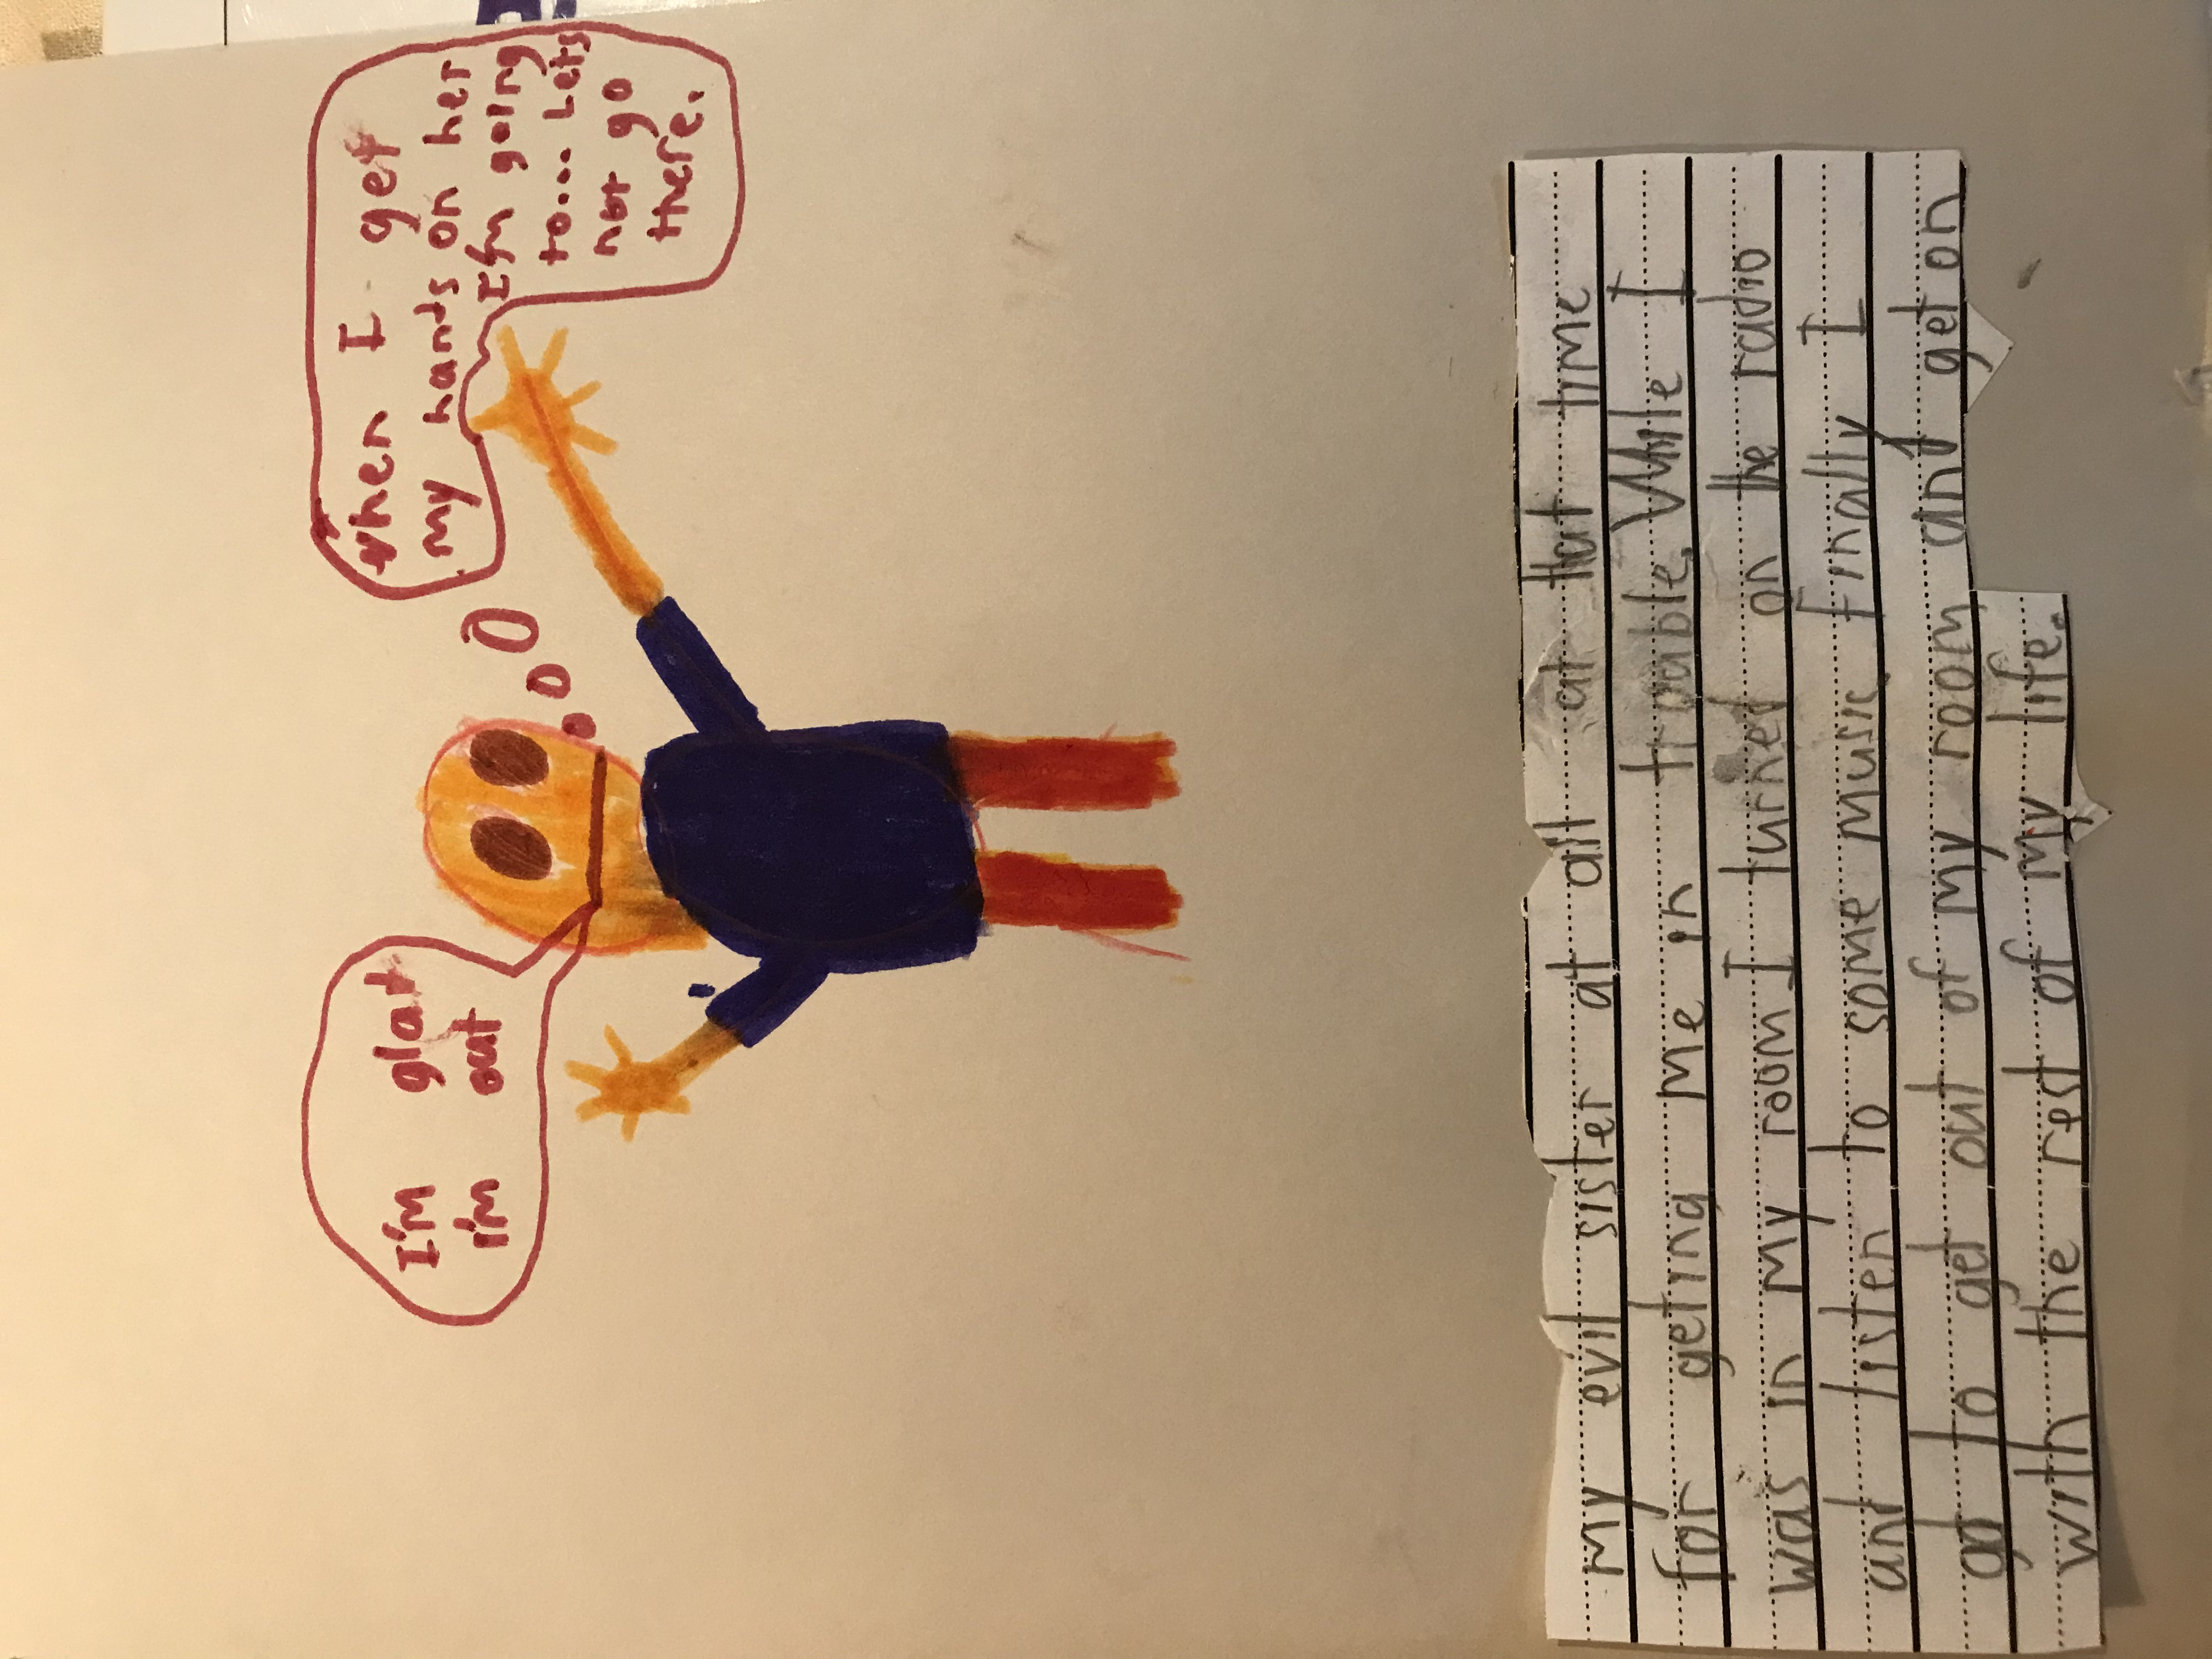 I'm glad
i'm out
when I get
my hands on her
I'm going
to... Lets
not go
there.
my evil sister at all at that time
for geting me in trouable. While I
was in my room I turned on the radio
and listen to some music Finally I
got to get out of my room and get on
with the rest of my life.